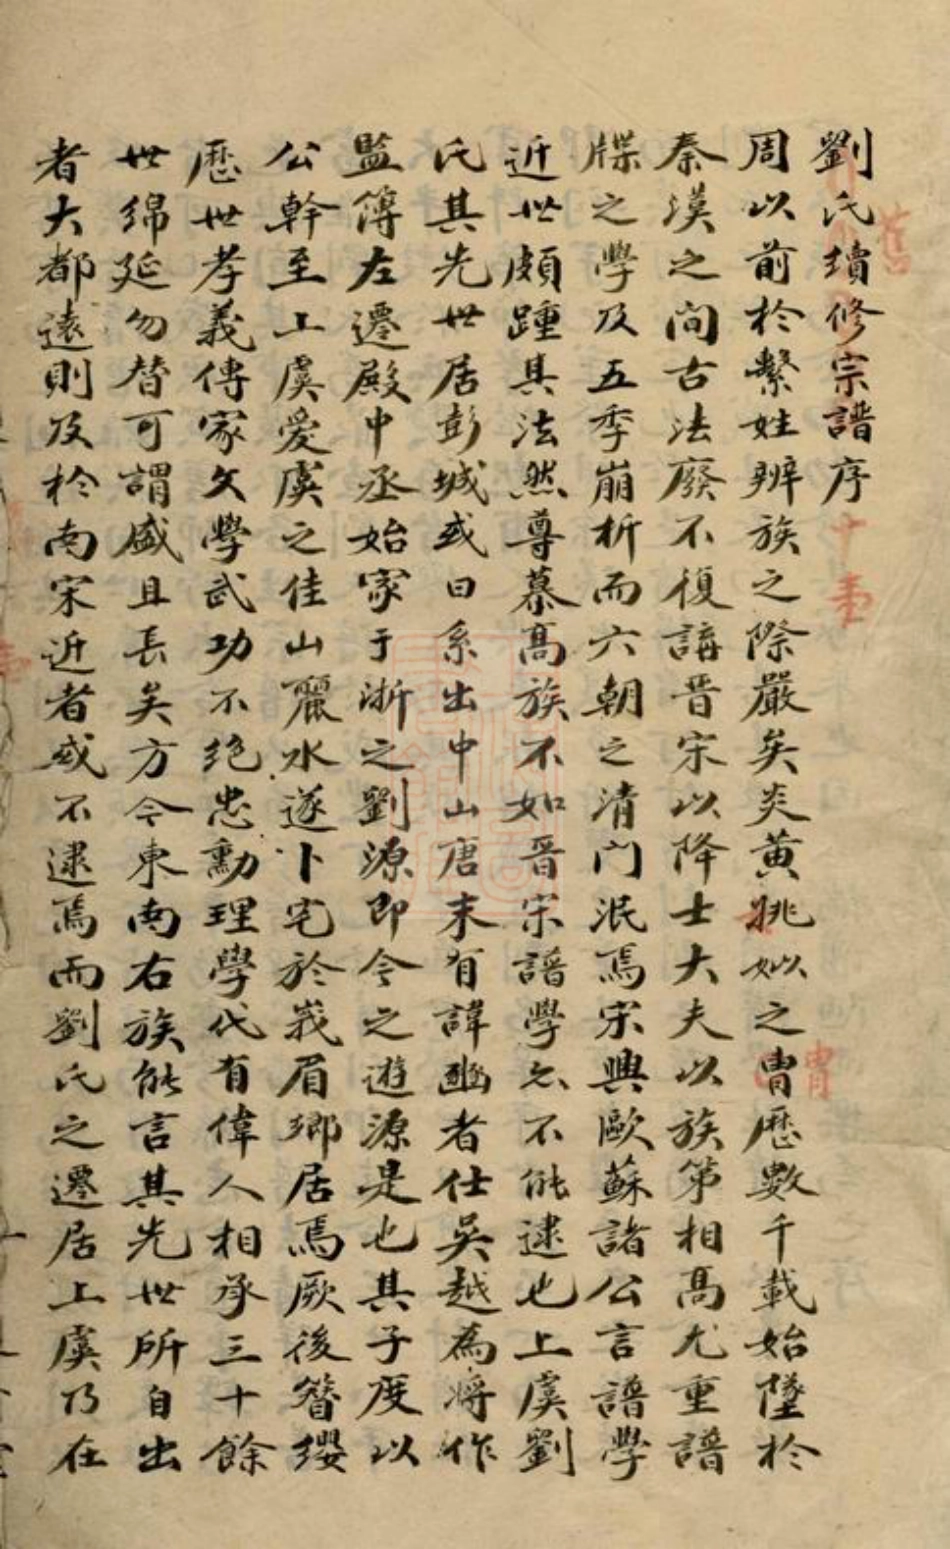 劉氏續修宗譜序
周以前於繫姓辨族之際嚴矣炎黃姚姒之胄歷數千載始墜於
秦漢之間古法廢不復講晋宋以降士大夫以族第相高尤重譜
牒之學及五季崩析而六朝之清門泯焉宋興歐蘇諸公言譜學
近世頗踵其法然尊慕高族不如晋宋譜學亦不能逮也上虞劉
氏其先世居彭城或曰系出中山唐末有諱豳者仕吳越為將作
監簿左遷殿中丞始家于浙之劉源即今之遊源是也其子度以
公幹至上虞愛虞之佳山麗水遂卜宅於峩眉鄉居焉厥後簪纓
歷世孝義傳家文學武功不絕忠勳理學代有偉人相承三十餘
世綿延勿替可謂盛且長矣方今東南右族能言其先世所自出
者大都遠則及於南宋近者或不逮焉而劉氏之遷居上虞乃在
舊
十
胄